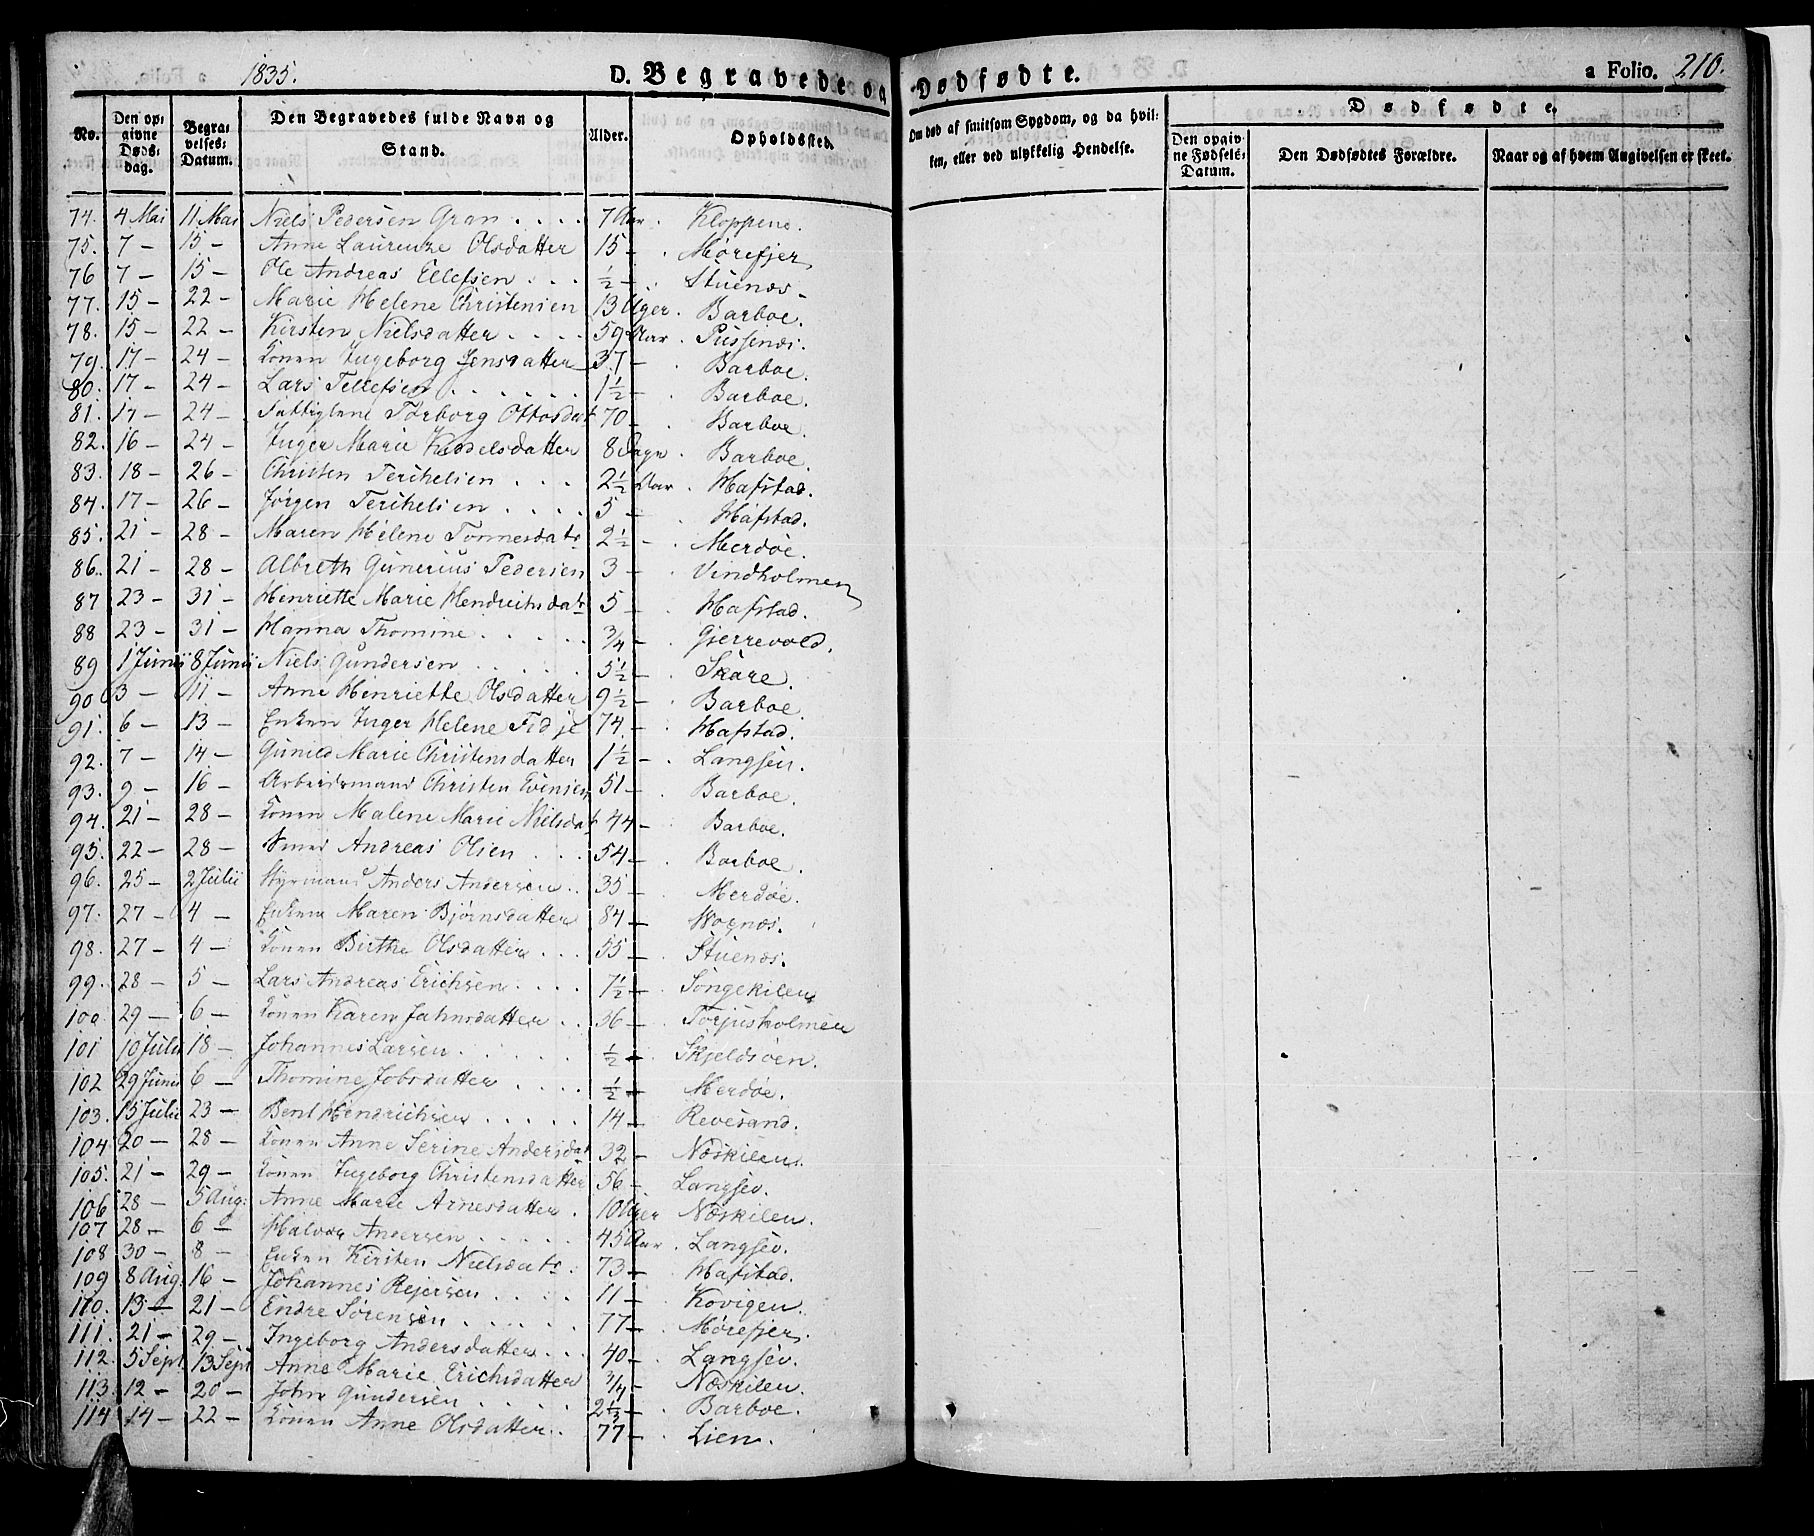 1835.
D. Begravede og Dødfødte.
a Folio. 210.
No. Den opgivne Dødsdag. Begravelses-Datum. Den Begravedes fulde Navn og Stand. Alder. Opholdssted. Om død af smitsom Sygdom, og da hvilken, eller ved ulykkelig Hendelse. Dødfødte. Den opgivne Fødsels-Datum. Den Dødfødtes Forældre. Naar og af hvem Angivelsen er skeet.
74. 4 Mai 11 Mai Niels Pedersen Gran . . . . 7 Aar. Kloppene.
75. 7 — 15 — Anne Laurenze Olsdatter 15 — . Mørefjer
76 7 — 15 — Ole Andreas Ellefsen . . . ½ — . Stuenæs
77. 15 — 22 — Marie Helene Christensen 13 Uger. Barboe.
78. 15 — 22 — Kirsten Nielsdatter . . . . 59 Aar . Pussenæs.
79. 17 — 24 — Konen Ingeborg Jensdatter 37 — . Barboe.
80. 17 — 24 — Lars Tellefsen . . . . . 1½ — . Barboe.
81. 17 — 24 — Torborg Ottosdat 70 — Barboe.
82. 16 — 24 — Inger Marie Keddelsdatter 8 Dage . Barboe.
83. 18 — 26 — Christen Terchelsen . . . 2½ Aar . Hafstad.
84. 17 — 26 — Jørgen Terchelsen . . . . 5 — . Hafstad.
85. 21 — 28 — Maren Helene Tønnesdatr 2½ — . Merdøe.
86. 21 — 28 — Albreth Gunerius Pedersen 3 — . Vindholmen
87 23 — 31 — Henriette Marie Hendrichsdatr 5 — . Hafstad.
88 23 — 31 — Hanna Thomine . . . . . ¾ — . Gjerrevold.
89 1 Junii 8 Junii Niels Gundersen . . . . . 5½ — . Skare.
90 3 — 11 — Anne Henriette Olsdatter 9½ — . Barboe.
91. 6 — 13 — Enken Inger Helene Fidje 74. — . Hafstad.
92. 7 — 14 — Gunild Marie Christensdatter 1½ — . Langsev.
93. 9 — 16 — Arbeidsmand Christen Evensen 51 — . Barboe.
94. 21 — 28 — Konen Malene Marie Nielsdat 44 — Barboe.
95. 22 — 28 — Andreas Olsen . . . 54 — . Barboe.
96. 25 — 2 Julii Styrmand Anders Andersen . . 35 — . Merdøe.
97. 27 — 4 — Enken Maren Bjørnsdatter 84 — .
98. 27 — 4 — Konen Birthe Olsdatter . . . 55 — . Stuenæs.
99. 28 — 5 — Lars Andreas Erichsen . . . . 7½ — . Songekilen
100. 29 — 6 — Konen Karen Jahnsdatter . . 56 — . Torjusholmen
101 10 Julii 18 — Johannes Larsen . . . . . ½ — . Skjeldsøen.
102 29 Junii 6 — Thomine Jobsdatter . . . . ½ — . Merdøe.
103. 15 Julii 23 — Bent Hendrichsen . . . . . 14 — . Revesand.
104 20 — 28 — Konen Anne Serine Andersdat 32 — . Næskilen.
105. 21 — 29 — Konen Ingeborg Christensdatter 56 — . Langsev.
106 28 — 5 Aug: Anne Marie Arnesdatter . 10 Uger . Næskilen.
107 28 — 6 — Halvor Andersen . . . . . 45 Aar . Langsev.
108 30 — 8 — Enken Kirsten Nielsdatr . 73 — . Hafstad.
109 8 Aug. 16 — Johannes Rejersen . . . . 11 — . Kovigen.
110. 13 — 21 — Endre Sørensen . . . . . 77 — . Mørefjer.
111. 21 — 29 — Ingeborg Andersdatter . . . 40 — . Langsev.
112. 5 Sept. 13 Sept Anne Marie Erichsdatter ¾ — . Næskilen.
113. 12 — 20 — John Gundersen . . . . . 2⅓ — . Barboe.
114 14 — 22 — Konen Anne Olsdatter . . 77 — . Lien.